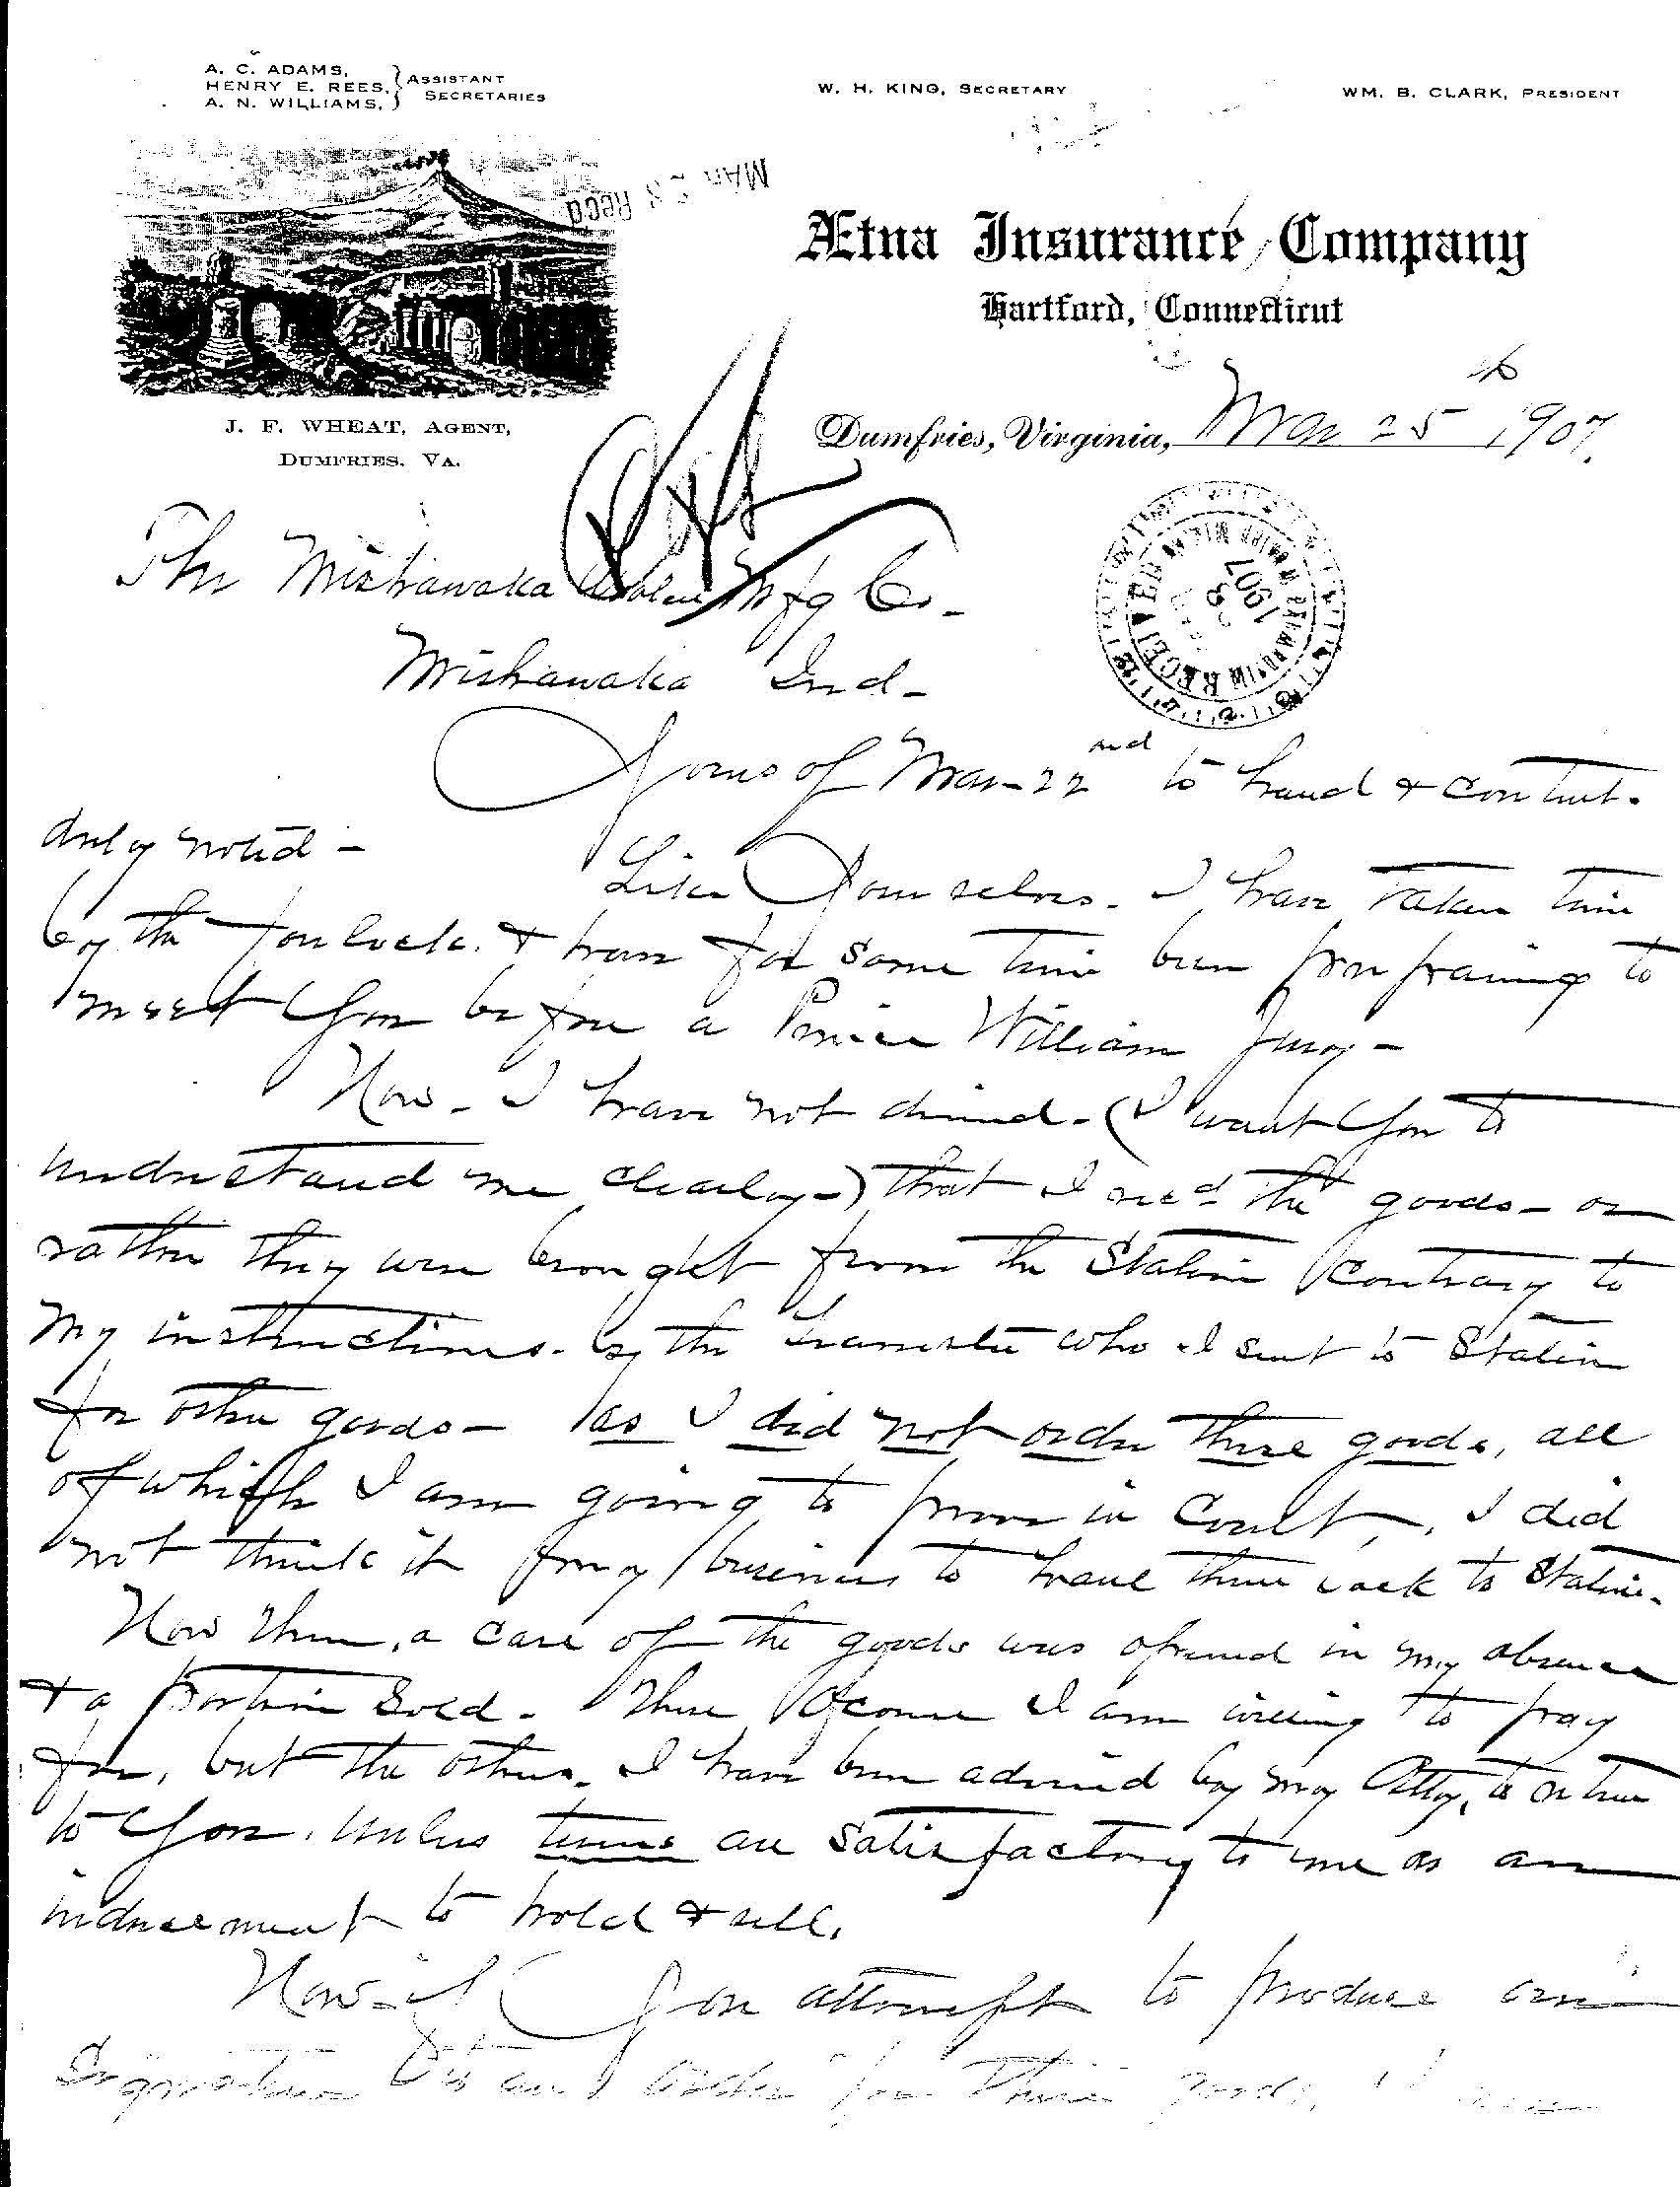 A. C. ADAMS,
HENRY E. REES,
A. N. WILLIAMS,
ASSISTANT
SECRETARIES
W. H. KING, SECRETARY
WM. B. CLARK, PRESIDENT
MAR 28 Recd
Ætna Insurance Company
Hartford, Connecticut
J. F. WHEAT, AGENT,
DUMFRIES, VA.
Dumfries, Virginia, Mar 25th 1907.
RECEIVED
1907
The Mishawaka Woolen Mfg Co-
Mishawaka Ind-
Yours of Mar-22nd to hand & content.
duly noted-
Like Yourselves- I have taken time
by the forelock. & have for some time been preparing to
meet You before a Prince William Jury-
Now- I have not denied- (I want You to
understand me clearly-) that I recd the goods- or
rather they were brought from the Station contrary to
my instructions- by the teamster who I sent to Station
for other goods- as I did not order these goods, all
of which I am going to prove in Court, I did
not think it my business to haul them back to Station-
Now then, a case of the goods was opened in my absence
& a portion sold- These of course I am willing to pay
for, but the others- I have been advised by my Atty, to return
to You. Unless terms are satisfactory to me as an
inducement to hold & sell.
Now- if You attempt to produce any
Signature to an order for these goods, I